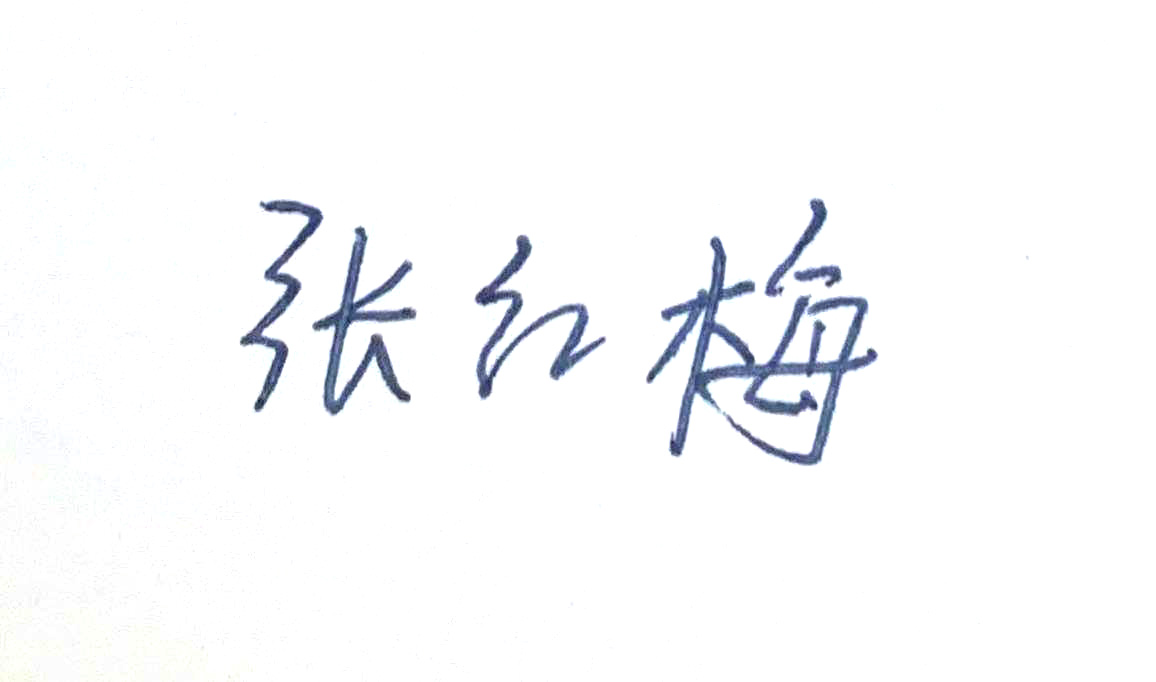 张红梅